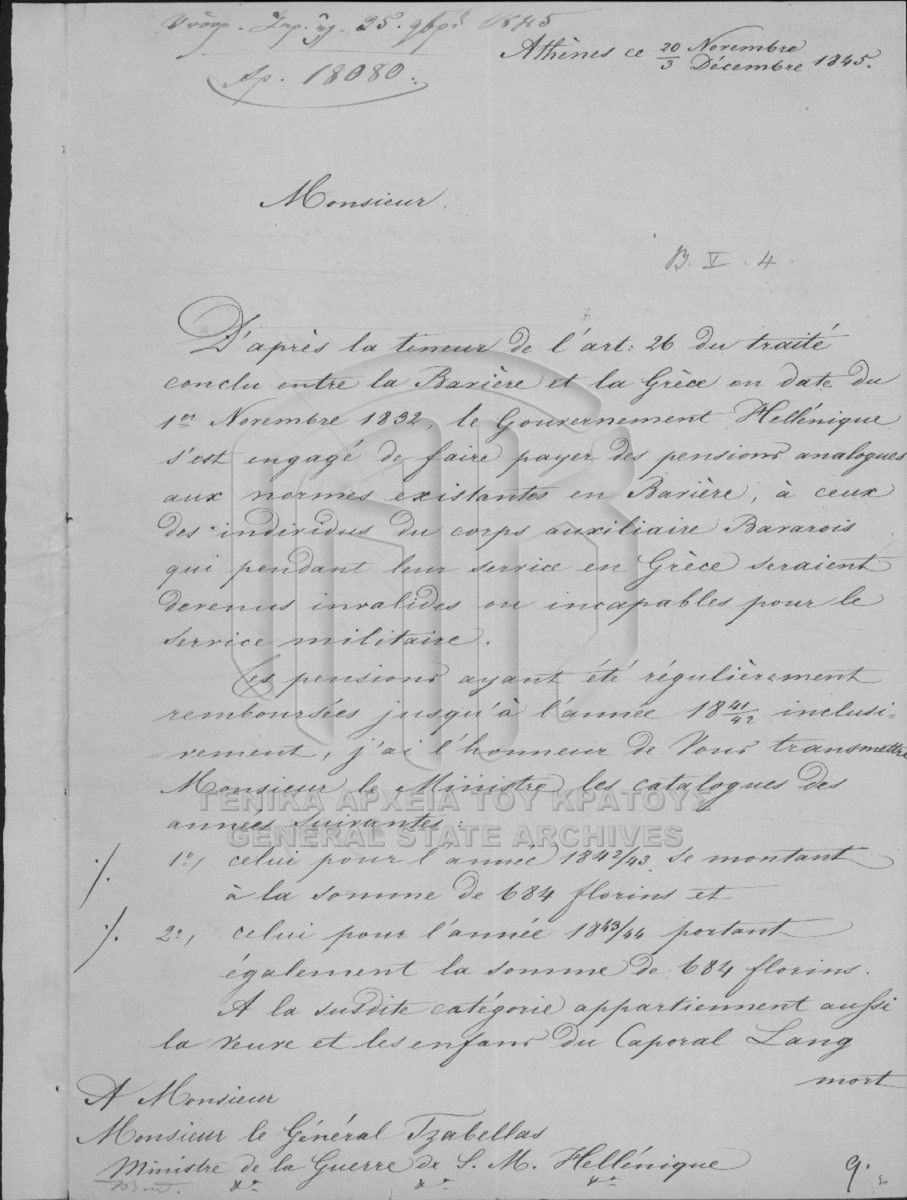 25
Ap. 18080.
Athènes ce 20/3 Novembre/Décembre 1845.
Monsieur,
B. V. 4.
D'après la teneur de l'art: 26 du traité
conclu entre la Bavière et la Grèce en date du
1er Novembre 1832, le Gouvernement Hellénique
s'est engagé de faire payer des pensions analogues
aux normes existantes en Bavière, à ceux
des individus du corps auxiliaire Bavarois
qui pendant leur service en Grèce seraient
devenus invalides ou incapables pour le
service militaire.
Ces pensions ayant été régulièrement
remboursées jusqu'à l'année 18 41/42 inclusi-
vement, j'ai l'honneur de Vous transmettre
Monsieur le Ministre les catalogues des
années suivantes:
ΓΕΝΙΚΑ ΑΡΧΕΙΑ ΤΟΥ ΚΡΑΤΟΥΣ
GENERAL STATE ARCHIVES
·/. 1o, celui pour l'année 1842/43 se montant
à la somme de 684 florins et
·/. 2o, celui pour l'année 1843/44 portant
également la somme de 684 florins.
A la susdite catégorie appartiennent aussi
la veuve et les enfans du Caporal Lang
mort
A Monsieur
Monsieur le Général Tzabellas
Ministre de la Guerre de S. M. Hellénique
9.